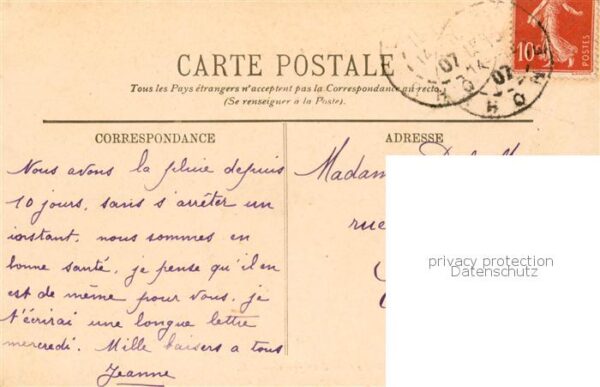 10c
POSTES
07
07
RHONE
CARTE POSTALE
Tous les Pays étrangers n'acceptent pas la Correspondance au recto.
(Se renseigner à la Poste).
CORRESPONDANCE
Nous avons la pluie depuis
10 jours, sans s'arrêter un
instant. nous sommes en
bonne santé, je pense qu'il en
est de même pour vous. je
t'écrirai une longue lettre
mercredi. Mille baisers a tous
Jeanne
ADRESSE
Madam
rue
privacy protection
Datenschutz